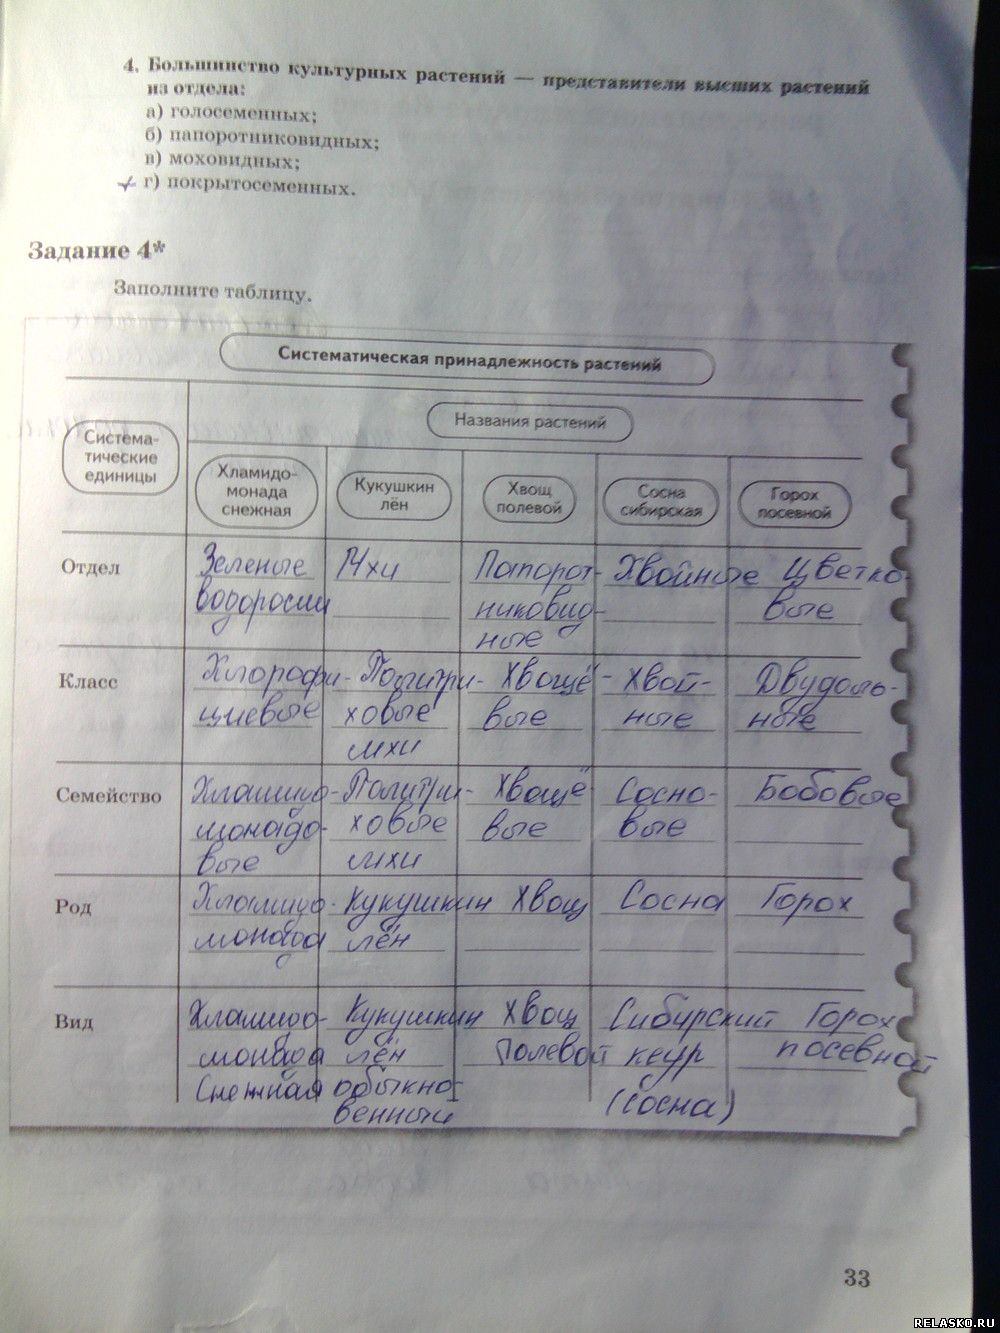 4. Большинство культурных растений — представители высших растений
из отдела:
а) голосеменных;
б) папоротниковидных;
в) моховидных;
г) покрытосеменных.
Задание 4*
Заполните таблицу.
Систематическая принадлежность растений
Система-
тические
единицы
Названия растений
Хламидо-
монада
снежная
Кукушкин
лён
Хвощ
полевой
Сосна
сибирская
Горох
посевной
Отдел
Зеленые
водоросли
Мхи
Папорот-
никовид-
ные
Хвойные
Цветко-
вые
Класс
Хлорофи-
циевые
Политри-
ховые
мхи
Хвощё-
вые
Хвой-
ные
Двудоль-
ные
Семейство
Хламидо-
монадо-
вые
Политри-
ховые
мхи
Хвощё
вые
Сосно-
вые
Бобовые
Род
Хламидо-
монада
Кукушкин
лён
Хвощ
Сосна
Горох
Вид
Хламидо-
монада
Снежная
Кукушкин
лён
обыкно-
венный
Хвощ
полевой
Сибирский
кедр
(сосна)
Горох
посевной
33
RELASKO.RU